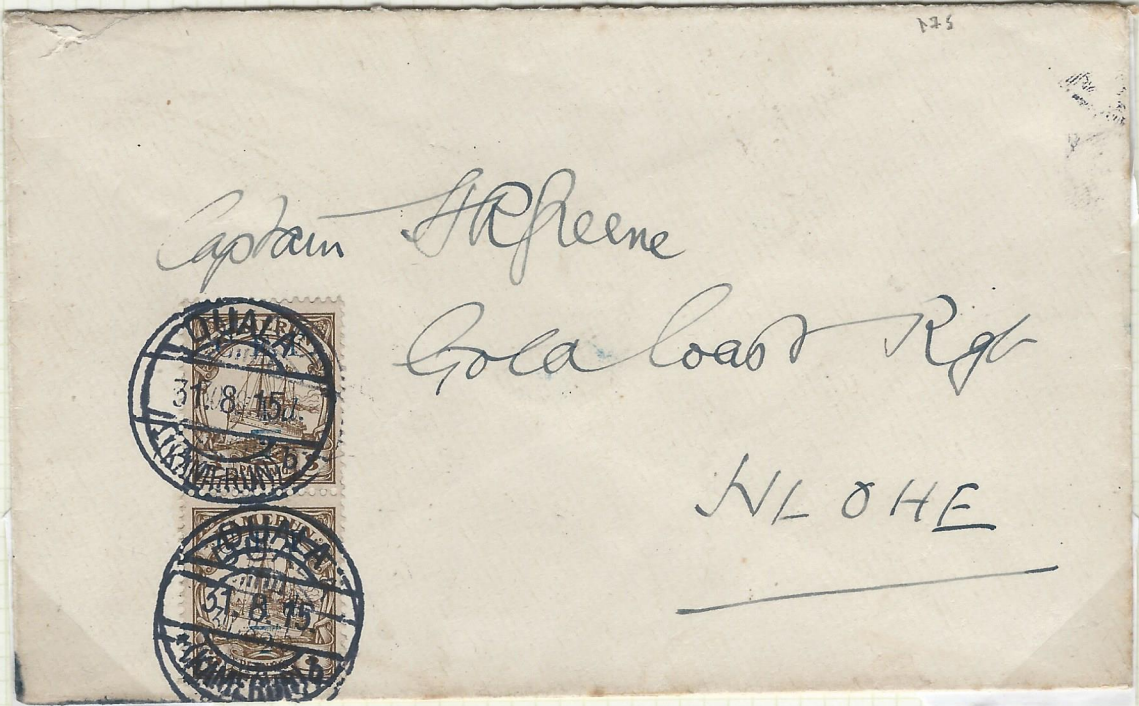 175
Captain H R Greene
Gold Coast Rgt
NLOHE
KAMERUN
DUALA
31.8.15
(KAMERUN) b
KAMERUN
DUALA
31.8.15
(KAMERUN) b